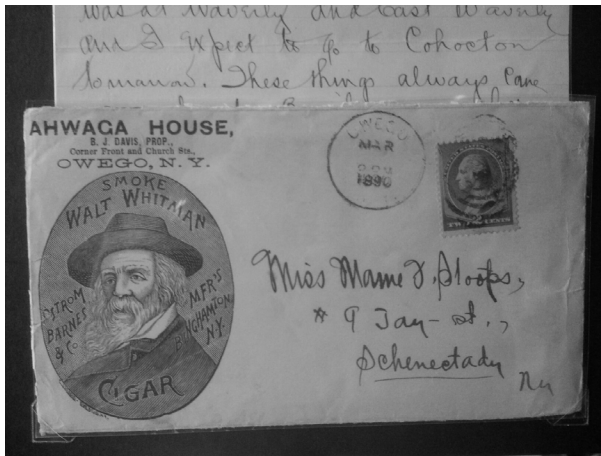 was at Waverly and East Waverly
and I expect to go to Cohocton
tomorrow. These things always
AHWAGA HOUSE,
B. J. DAVIS, PROP.,
Corner Front and Church Sts.,
OWEGO, N. Y.
SMOKE
WALT WHITMAN
OSTROM
BARNES
& Co.
MFR'S
BINGHAMTON
N.Y.
CIGAR
OWEGO
MAR
1890
TWO 2 CENTS
Miss Mame
# 9 Jay - St.,
Schenectady
Ny